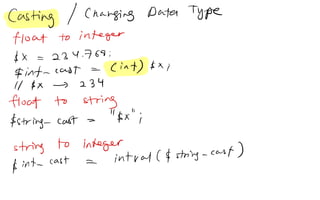 Casting / Changing Data Type
float to integer
$x = 234.769;
$int_cast = (int) $x;
// $x → 234
float to string
$string_cast = "$x";
string to integer
$int_cast = intval($string_cast)